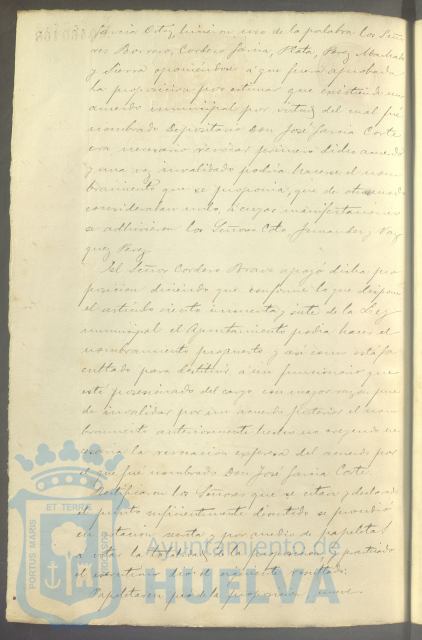 García Ortiz, hicieron uso de la palabra los Seño-
res Borrero, Cordero García, Plata, Perez Machado
y Sierra oponiéndose á que fuera aprobada
la proposición por estimar que existiendo un
acuerdo municipal por virtud del cual fué
nombrado Depositario Don José García Corte
era necesario revocar primero dicho acuerdo
y una vez invalidado podría hacerse el nom-
bramiento que se proponía, que de otro modo
consideraban nulo, á cuyas manifestaciones
se adhirieron los Señores Coto, Fernandez y Vaz-
quez Perez.
El Señor Cordero Bravo apoyó dicha pro-
posición diciendo que conforme lo que dispone
el artículo ciento cincuenta y siete de la Ley
municipal el Ayuntamiento podía hacer el
nombramiento propuesto y así como está fa-
cultado para destituir á un funcionario que
esté posesionado del cargo con mayor razón pue-
de invalidar por un acuerdo posterior el nom-
bramiento anteriormente hecho no creyendo ne-
cesaria la revocación expresa del acuerdo por
el que fué nombrado Don José García Corte.
Rectificaron los Señores que se citan y declarado
el punto suficientemente discutido se procedió
en votación secreta y por medio de papeletas
á votar la
el escrutinio dió el siguiente resultado:
Papeletas en pró de la proposición nueve.
PORTUS MARIS ET TERRÆ CUSTODIA
Ayuntamiento de
HUELVA